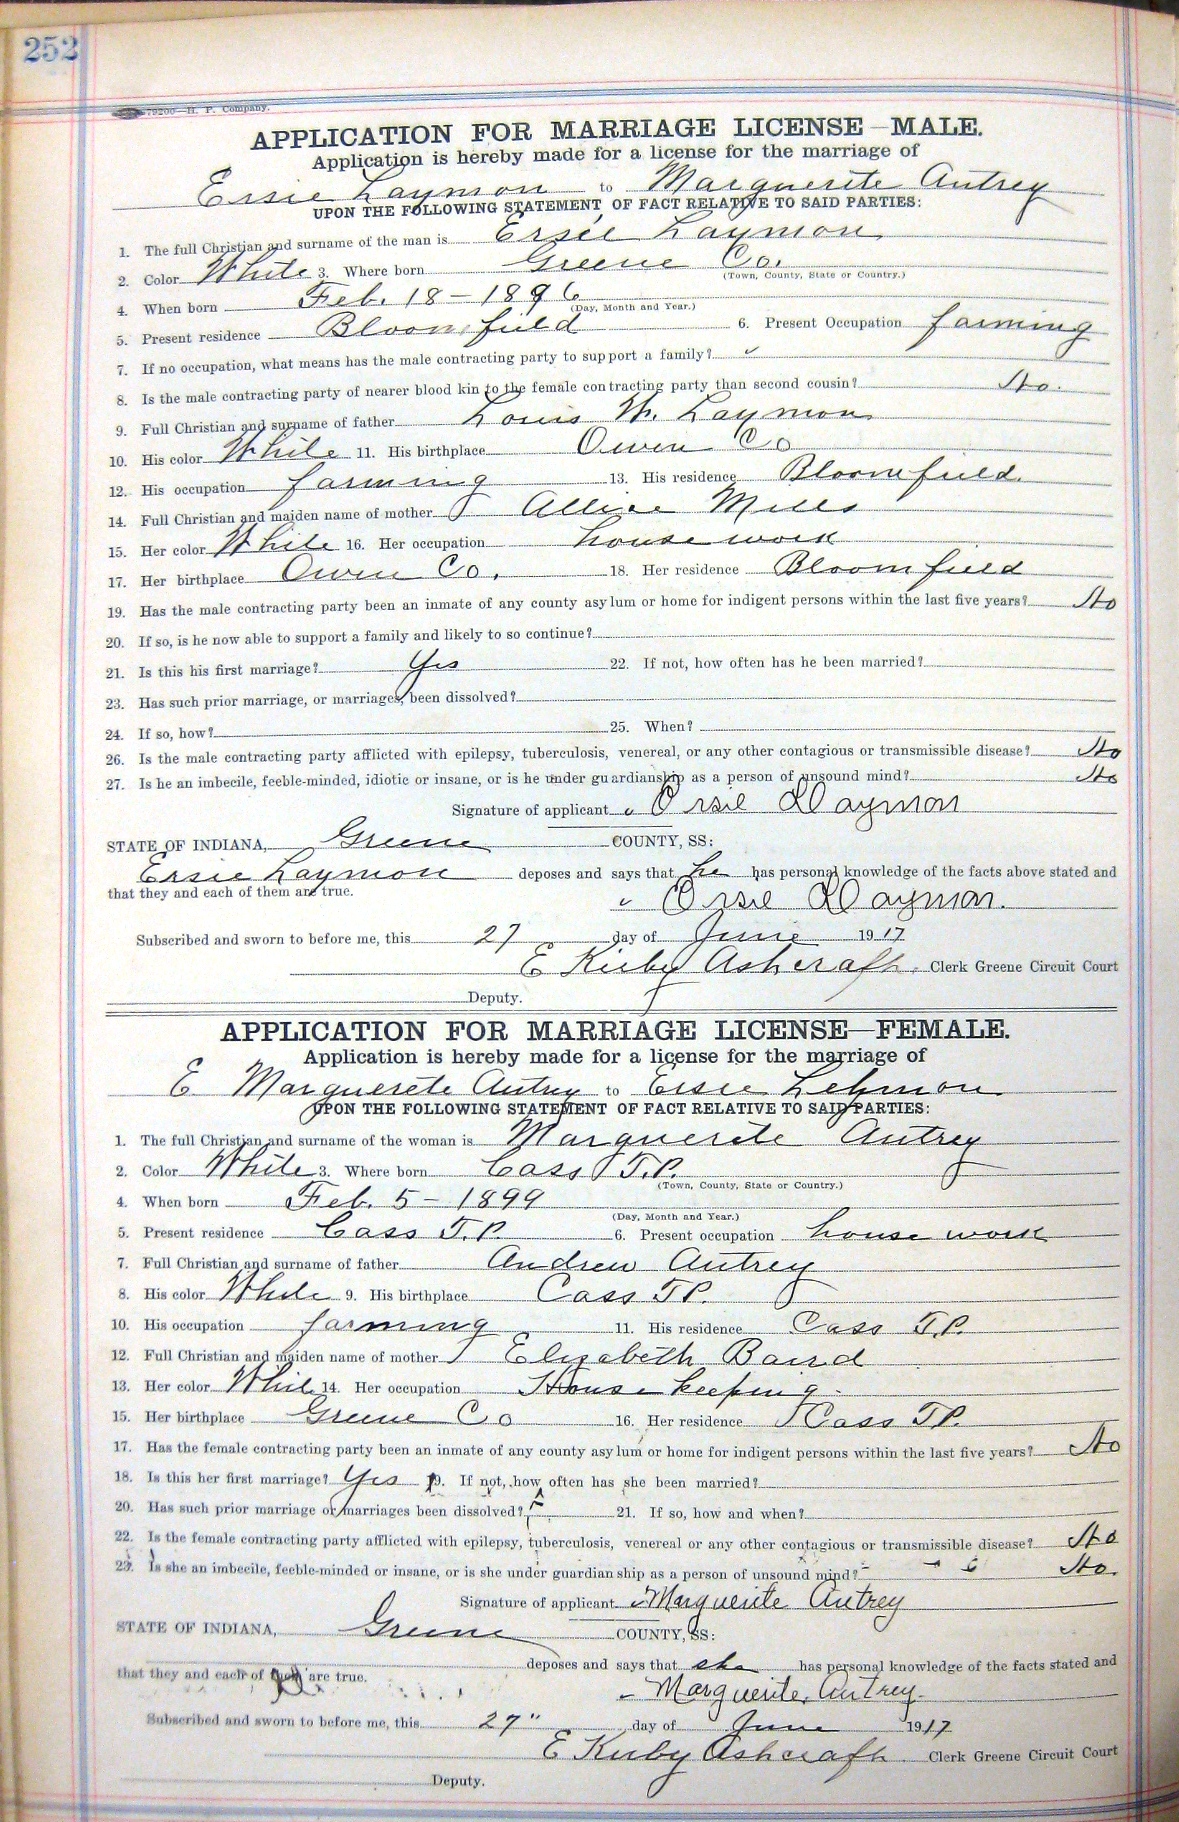 252
79200—H. P. Company.
APPLICATION FOR MARRIAGE LICENSE—MALE.
Application is hereby made for a license for the marriage of
Ersie Laymon to Marguerite Autrey
UPON THE FOLLOWING STATEMENT OF FACT RELATIVE TO SAID PARTIES:
1. The full Christian and surname of the man is Ersie Laymon
2. Color White 3. Where born Greene Co.
(Town, County, State or Country.)
4. When born Feb. 18-1896
(Day, Month and Year.)
5. Present residence Bloomfield 6. Present Occupation farming
7. If no occupation, what means has the male contracting party to support a family?
8. Is the male contracting party of nearer blood kin to the female contracting party than second cousin? No.
9. Full Christian and surname of father Louis W. Laymon
10. His color White 11. His birthplace Owen Co
12. His occupation farming 13. His residence Bloomfield.
14. Full Christian and maiden name of mother Allice Mills
15. Her color White 16. Her occupation house work
17. Her birthplace Owen Co. 18. Her residence Bloomfield
19. Has the male contracting party been an inmate of any county asylum or home for indigent persons within the last five years? No
20. If so, is he now able to support a family and likely to so continue?
21. Is this his first marriage? Yes 22. If not, how often has he been married?
23. Has such prior marriage, or marriages, been dissolved?
24. If so, how? 25. When?
26. Is the male contracting party afflicted with epilepsy, tuberculosis, venereal, or any other contagious or transmissible disease? No
27. Is he an imbecile, feeble-minded, idiotic or insane, or is he under guardianship as a person of unsound mind? No
Signature of applicant Orsie Laymon
STATE OF INDIANA, Greene COUNTY, SS:
Ersie Laymon deposes and says that he has personal knowledge of the facts above stated and
that they and each of them are true.
Orsie Laymon.
Subscribed and sworn to before me, this 27 day of June 1917
E Kirby Ashcraft. Clerk Greene Circuit Court
Deputy.
APPLICATION FOR MARRIAGE LICENSE—FEMALE.
Application is hereby made for a license for the marriage of
E Marguerete Autrey to Ersie Lehmon
UPON THE FOLLOWING STATEMENT OF FACT RELATIVE TO SAID PARTIES:
1. The full Christian and surname of the woman is Marguerite Autrey
2. Color White 3. Where born Cass T.P.
(Town, County, State or Country.)
4. When born Feb. 5-1899
(Day, Month and Year.)
5. Present residence Cass T.P. 6. Present occupation house work
7. Full Christian and surname of father Andrew Autrey
8. His color White 9. His birthplace Cass TP.
10. His occupation farming 11. His residence Cass T.P.
12. Full Christian and maiden name of mother Elizabeth Baird
13. Her color White 14. Her occupation House keeping.
15. Her birthplace Greene Co 16. Her residence Cass TP.
17. Has the female contracting party been an inmate of any county asylum or home for indigent persons within the last five years? No
18. Is this her first marriage? Yes 19. If not, how often has she been married?
20. Has such prior marriage or marriages been dissolved? 21. If so, how and when?
22. Is the female contracting party afflicted with epilepsy, tuberculosis, venereal or any other contagious or transmissible disease? No
23. Is she an imbecile, feeble-minded or insane, or is she under guardianship as a person of unsound mind? No.
Signature of applicant Marguerite Autrey
STATE OF INDIANA, Greene COUNTY, SS:
deposes and says that she has personal knowledge of the facts stated and
that they and each of them are true.
Marguerite Autrey.
Subscribed and sworn to before me, this 27" day of June 1917
E Kirby Ashcraft. Clerk Greene Circuit Court
Deputy.